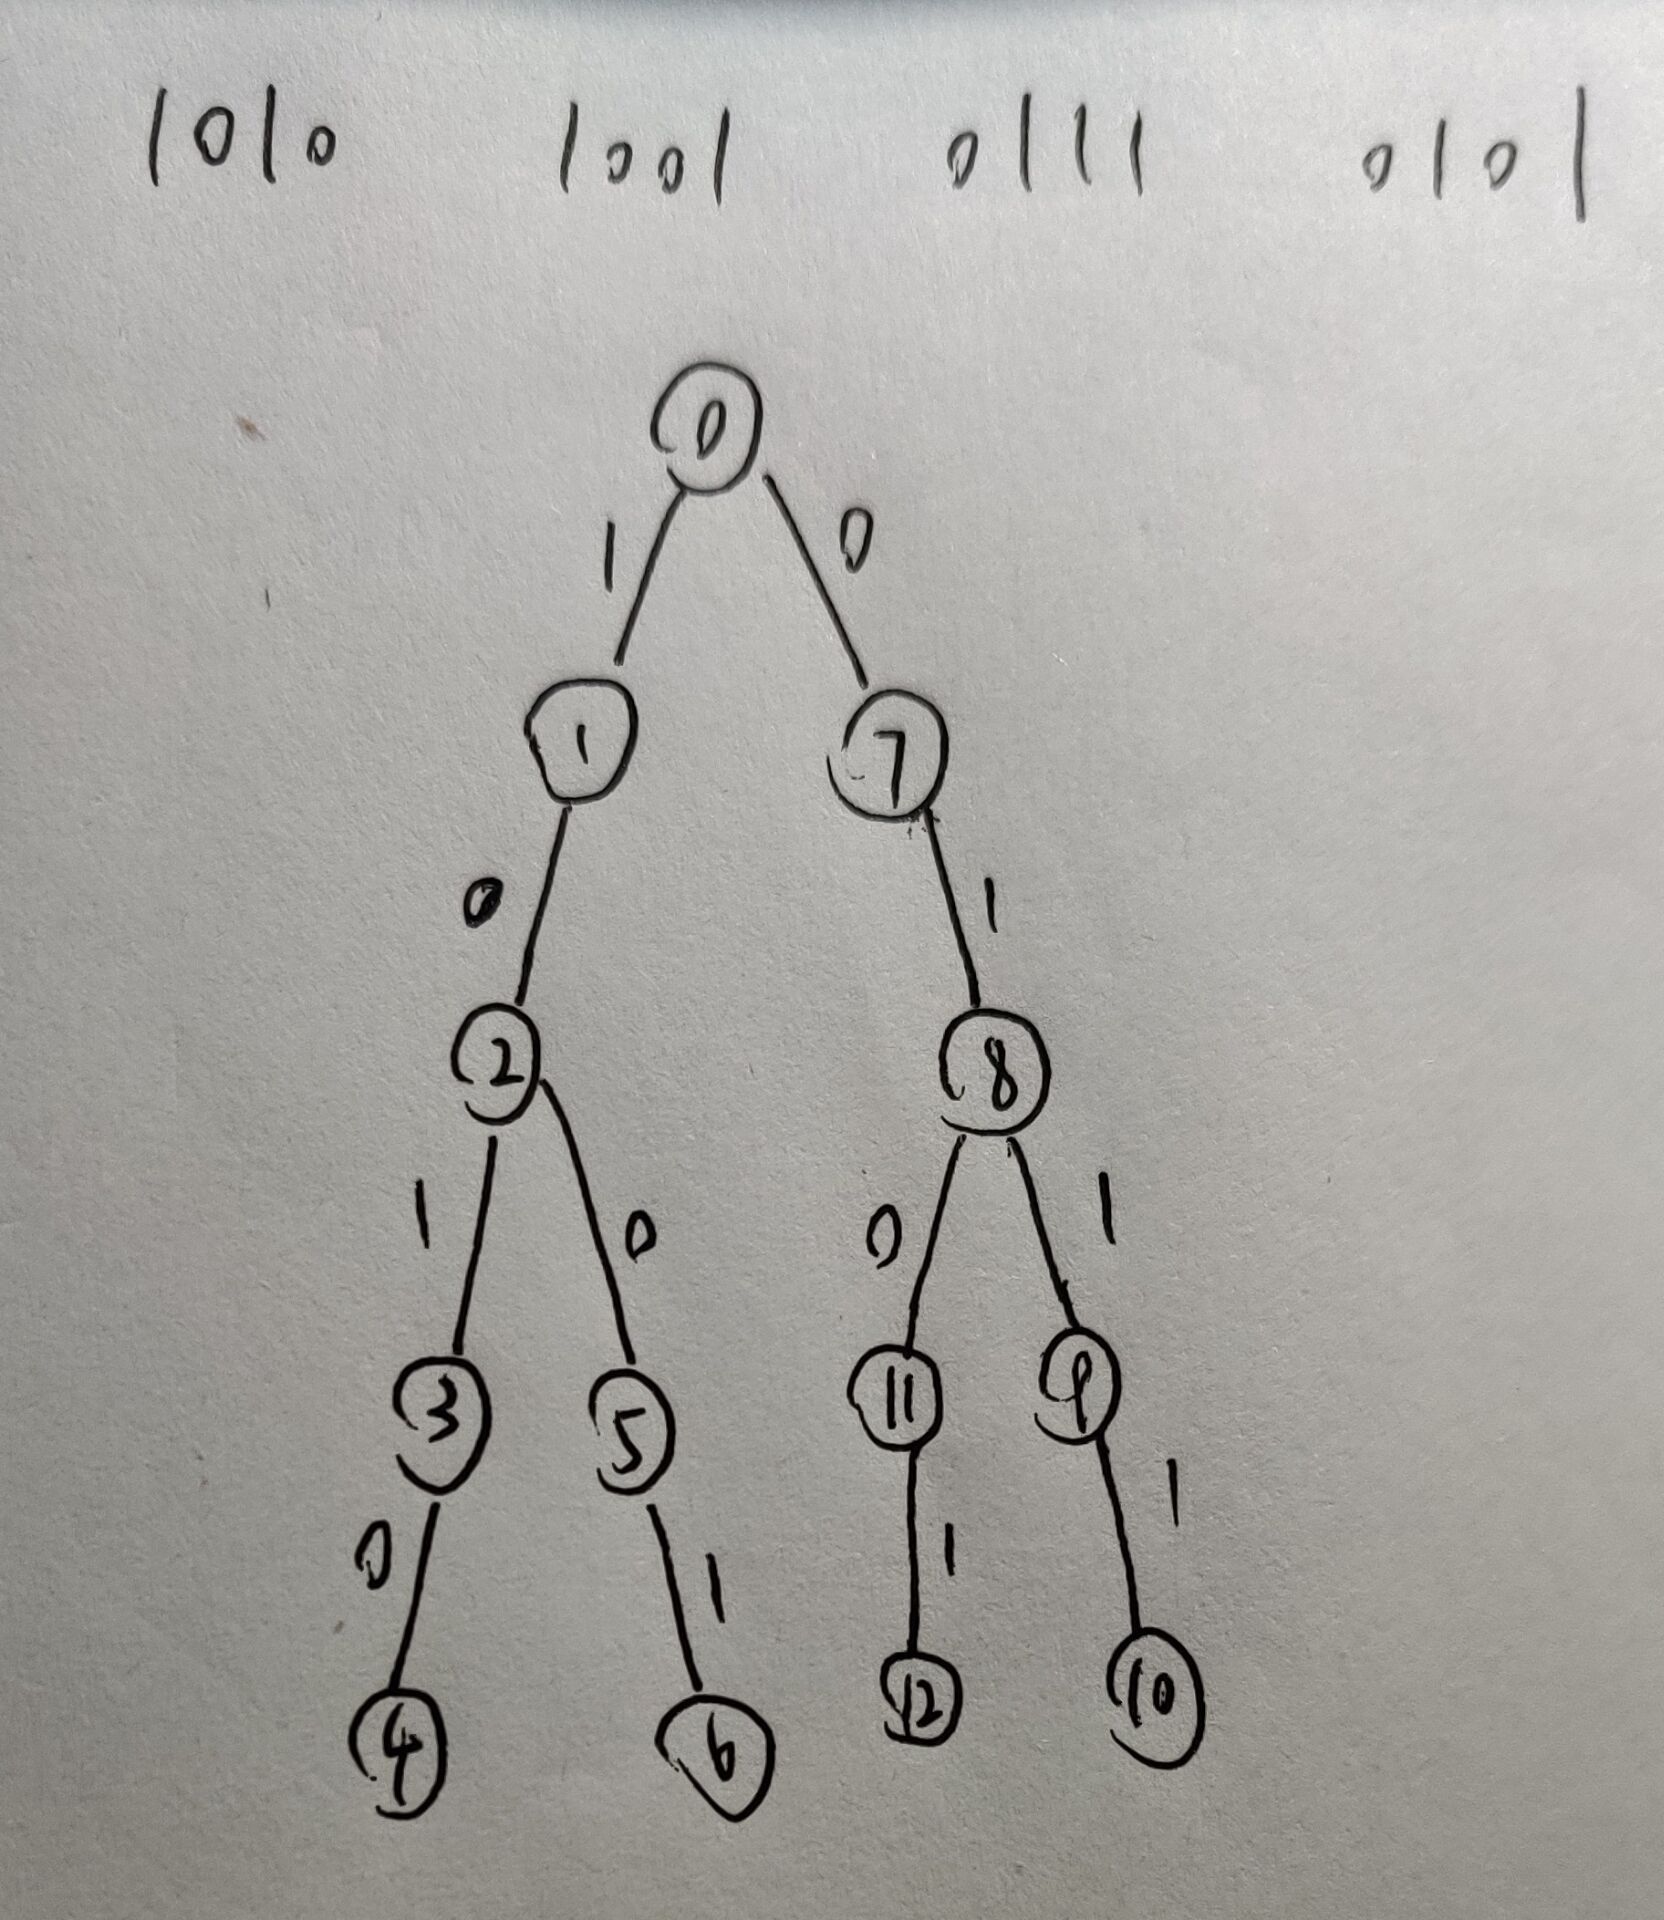 1010 1001 0111 0101
0
1 0
1 7
0 1
2 8
1 0 0 1
3 5 11 9
0 1 1 1
4 6 12 10